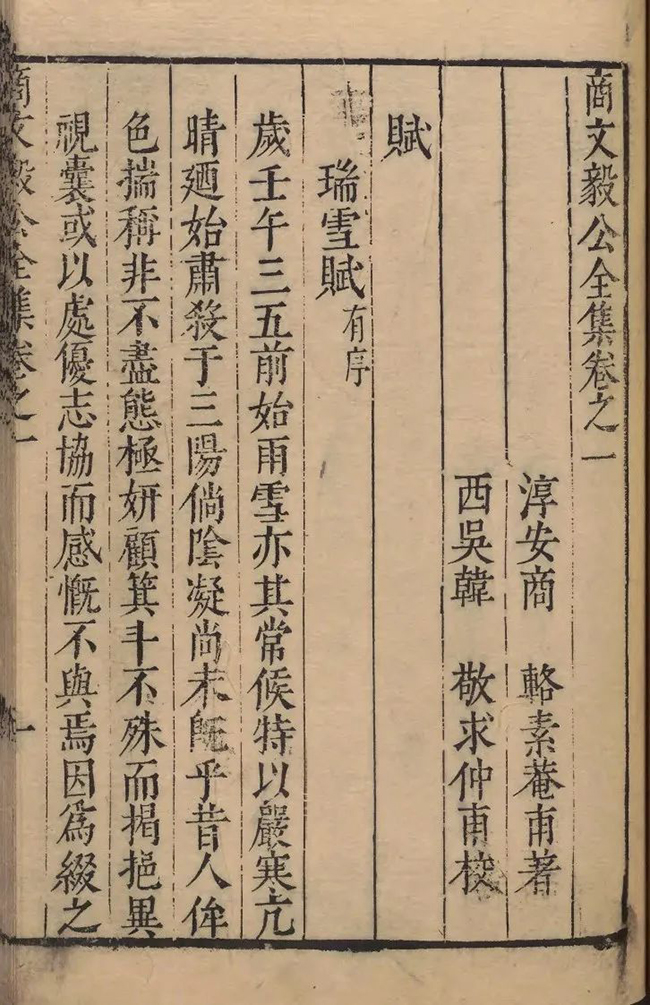 商文毅公全集卷之一
淳安商　輅素菴甫著
西吳韓　敬求仲甫校
賦
瑞雪賦有序
歲壬午三五前始雨雪亦其常候特以嚴寒亢
晴廼始肅殺于三陽倘陰凝尚未旣乎昔人侔
色揣稱非不盡態極妍顧箕斗不殊而掲挹異
視囊或以處優志協而感慨不與焉因爲綴之
商文毅公全集卷之一
一